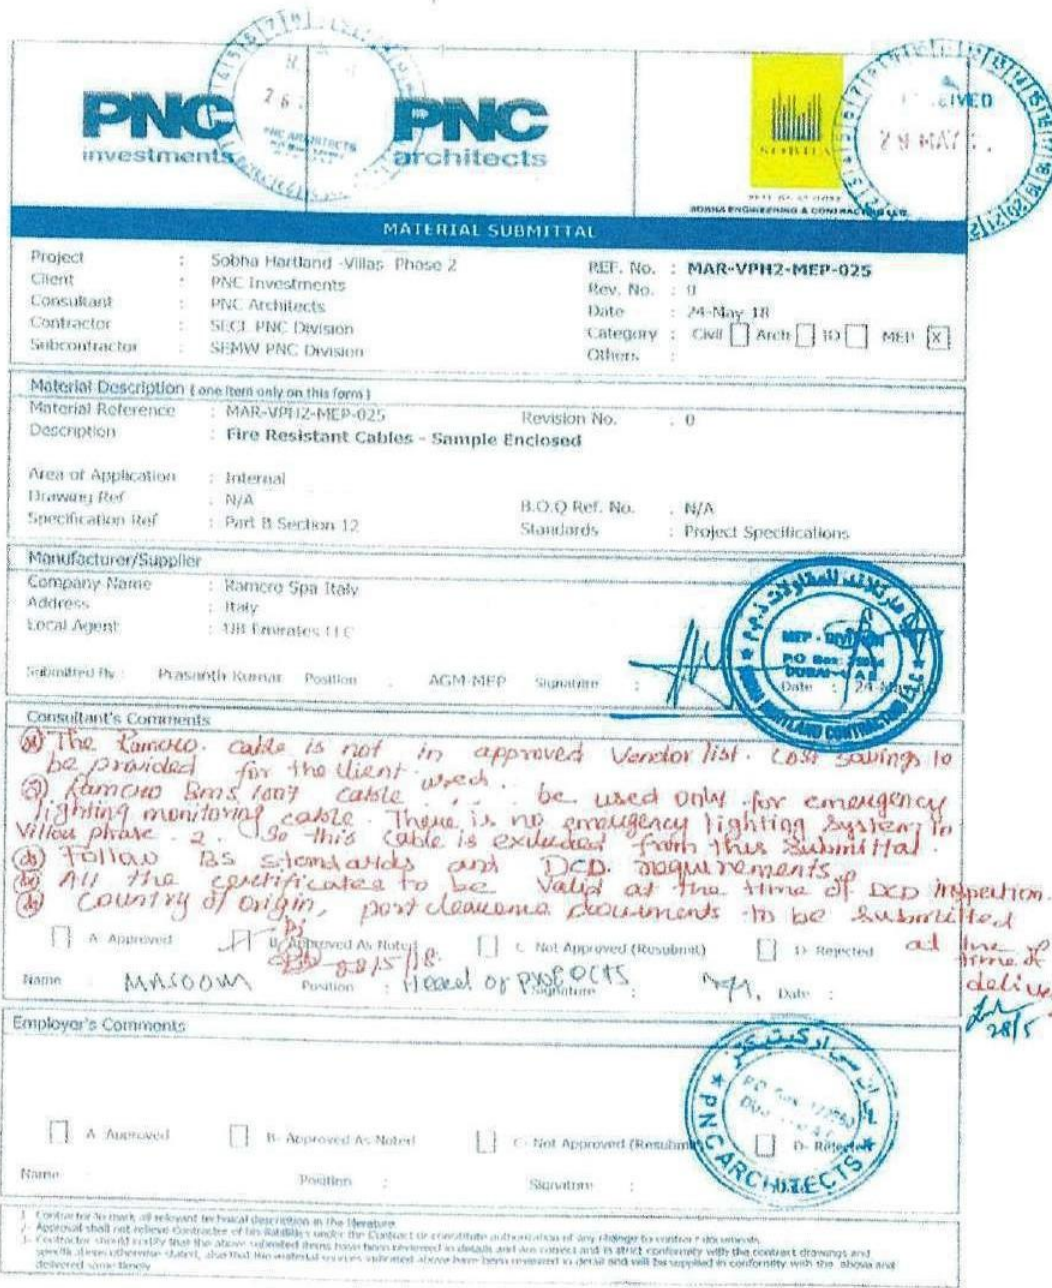 PNC
investments
PNC
architects
SOBHA
SOBHA ENGINEERING & CONTRACTING LLC.
MATERIAL SUBMITTAL
Project : Sobha Hartland -Villas Phase 2
REF. No. : MAR-VPH2-MEP-025
Client : PNC Investments
Rev. No. : 0
Consultant : PNC Architects
Date : 24-May-18
Contractor : SECL PNC Division
Category : Civil Arch ID MEP X
Subcontractor : SEMW PNC Division
Others :
Material Description ( one item only on this form )
Material Reference : MAR-VPH2-MEP-025
Revision No. : 0
Description : Fire Resistant Cables - Sample Enclosed
Area of Application : Internal
Drawing Ref : N/A
B.O.Q Ref. No. : N/A
Specification Ref : Part B Section 12
Standards : Project Specifications
Manufacturer/Supplier
Company Name : Ramcro Spa Italy
Address : Italy
Local Agent : Emirates LLC
MEP - DIVISION
P.O. Box:
DUBAI - U.A.E
Submitted By : Prasanth Kumar Position : AGM-MEP Signature : Date : 24-May
Consultant's Comments
The Ramcro. cable is not in approved Vendor list. Cost savings to
be provided for the client.
Ramcro BMS 1007 cable used be used only for emergency
lighting monitoring cable. There is no emergency lighting system in
Villas phase - 2. So this cable is excluded from this submittal.
Follow BS standards and DCD. requirements.
All the certificates to be valid at the time of DCD inspection.
Country of origin, port clearance documents to be submitted
at time of
delivery
A Approved B Approved As Noted C Not Approved (Resubmit) D Rejected
28/5/18
Name : MASOOM Position : Head of PROJECTS Signature : Date :
28/5
Employer's Comments
A Approved B- Approved As Noted C- Not Approved (Resubmit) D- Rejected
PNC ARCHITECTS
Name : Position : Signature :
1- Contractor to mark all relevant technical description in the literature
2- Approval shall not relieve Contractor of his liabilities under the Contract or constitute authorisation of any change to contract documents
3- Contractor should certify that the above submitted items have been reviewed in details and are correct and in strict conformity with the contract drawings and
specifications otherwise stated, also that the material sources indicated above have been reviewed in detail and will be supplied in conformity with the above and
delivered some timely